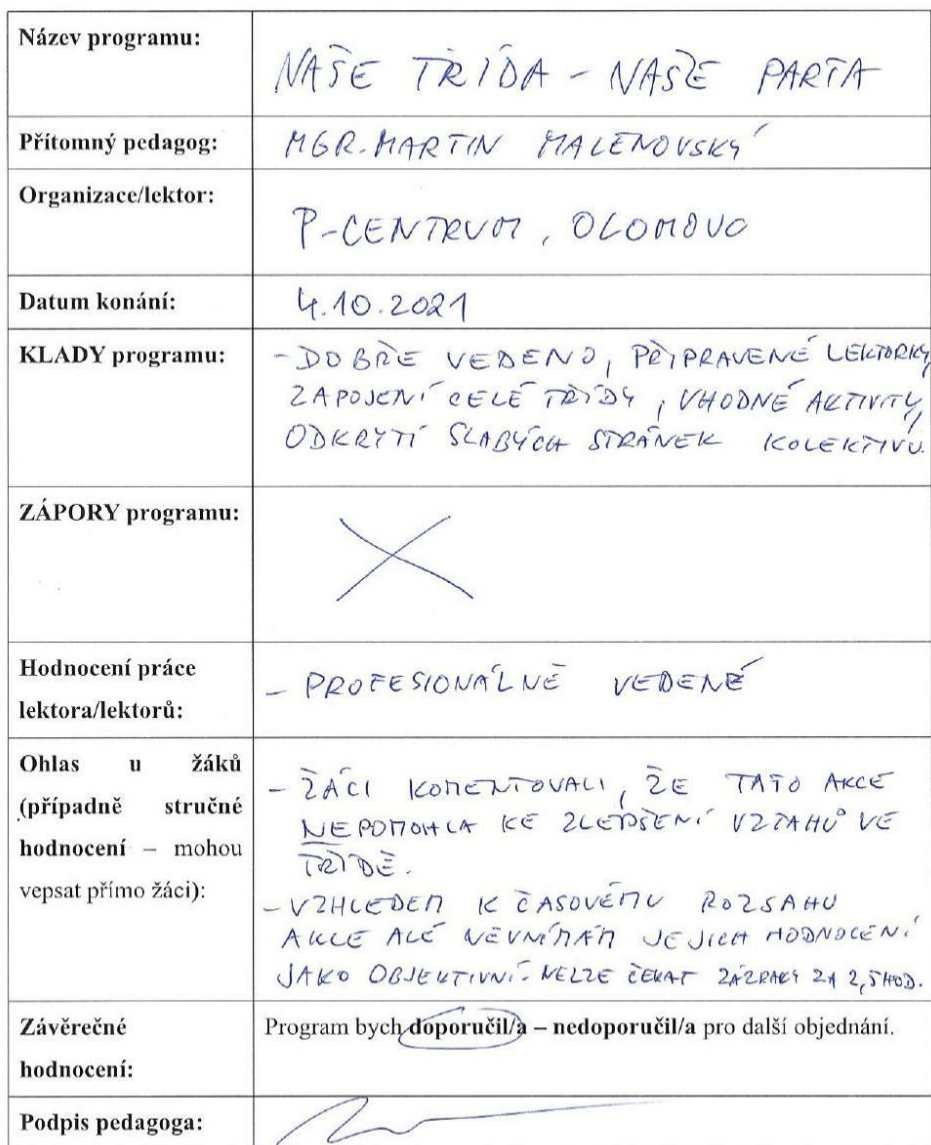 Název programu:
NAŠE TŘÍDA - NAŠE PARTA
Přítomný pedagog:
MGR. MARTIN MALENOVSKÝ
Organizace/lektor:
P-CENTRUM, OLOMOUC
Datum konání:
4.10.2021
KLADY programu:
- DOBŘE VEDENO, PŘIPRAVENÉ LEKTORKY,
ZAPOJENÍ CELÉ TŘÍDY, VHODNÉ AKTIVITY,
ODKRYTÍ SLABÝCH STRÁNEK KOLEKTIVU.
ZÁPORY programu:
Hodnocení práce
lektora/lektorů:
- PROFESIONÁLNĚ VEDENÉ
Ohlas u žáků
(případně stručné
hodnocení – mohou
vepsat přímo žáci):
- ŽÁCI KOMENTOVALI, ŽE TATO AKCE
NEPOMOHLA KE ZLEPŠENÍ VZTAHŮ VE
TŘÍDĚ.
- VZHLEDEM K ČASOVÉMU ROZSAHU
AKCE ALE NEVNÍMÁM JEJICH HODNOCENÍ
JAKO OBJEKTIVNÍ. NELZE ČEKAT ZÁZRAKY ZA 2,5HOD.
Závěrečné
hodnocení:
Program bych doporučil/a – nedoporučil/a pro další objednání.
Podpis pedagoga: